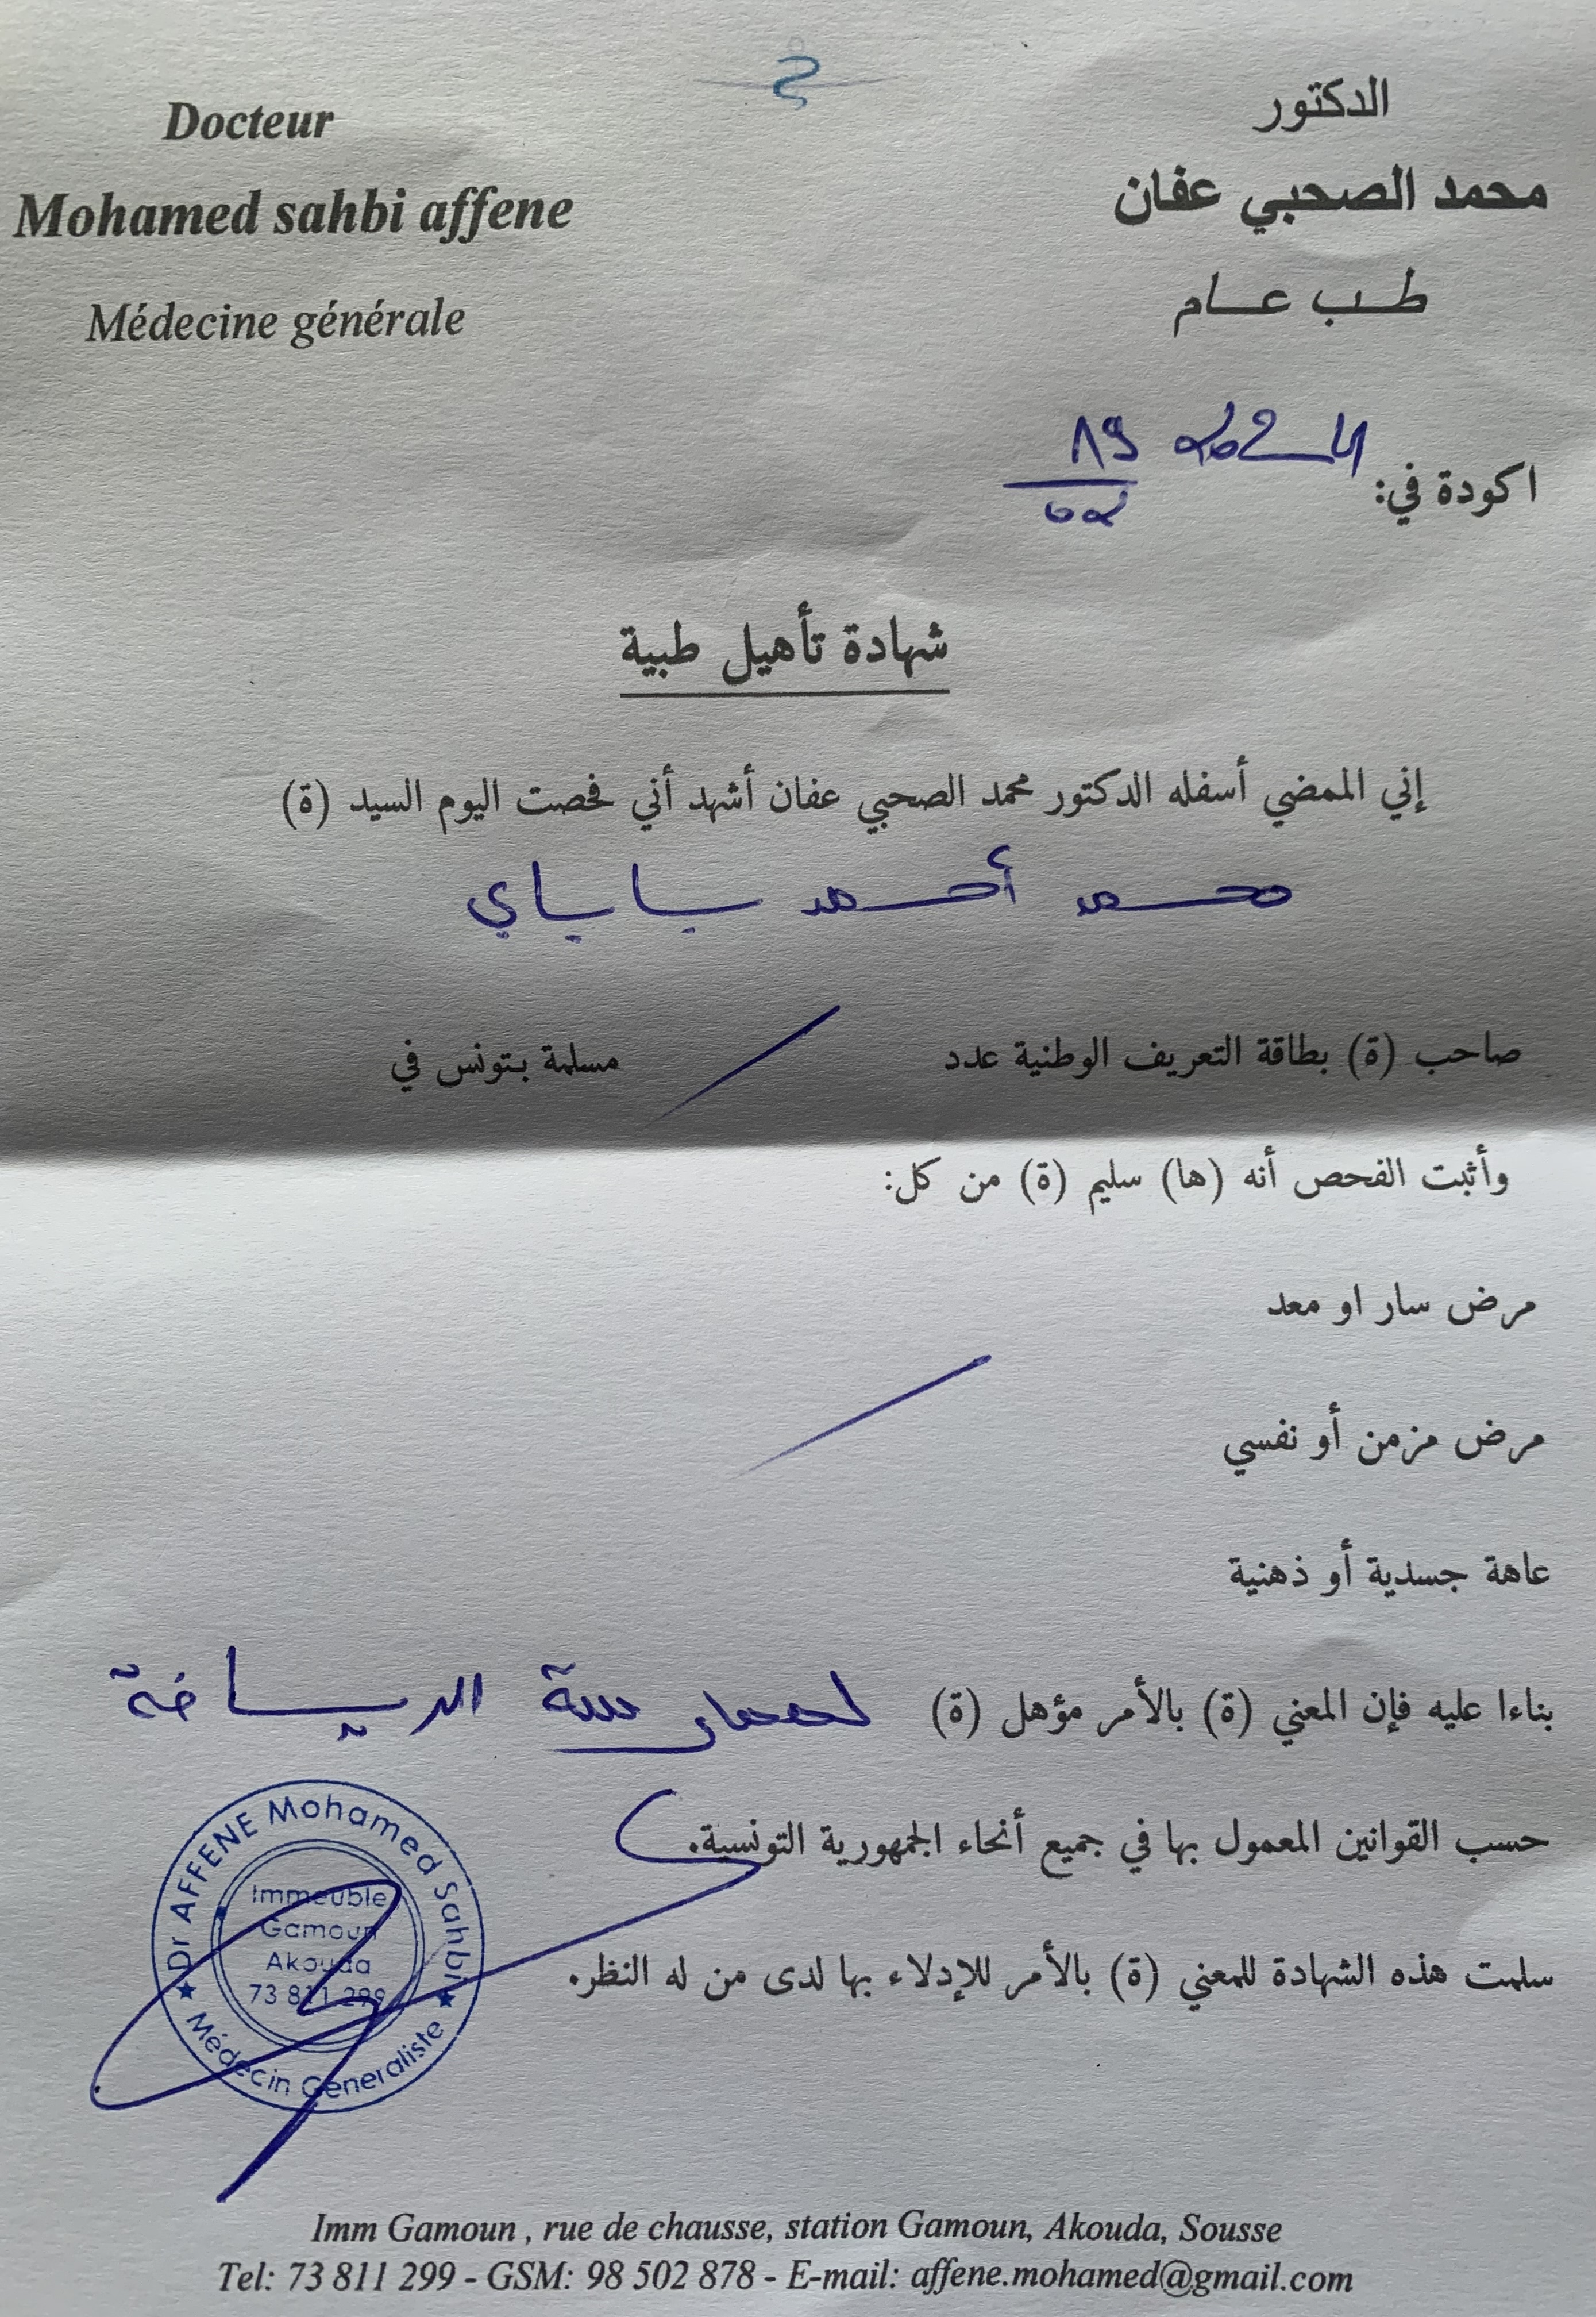 Docteur
Mohamed sahbi affene
Médecine générale
الدكتور
محمد الصحبي عفان
طب عام
اكودة في:
19
02
شهادة تأهيل طبية
إني الممضي أسفله الدكتور محمد الصحبي عفان أشهد أني فحصت اليوم السيد (ة)
محمد أحمد بابباي
صاحب (ة) بطاقة التعريف الوطنية عدد / مسلمة بتونس في
وأثبت الفحص أنه (ها) سليم (ة) من كل:
مرض سار او معد
مرض مزمن أو نفسي
عاهة جسدية أو ذهنية
بناءا عليه فإن المعني (ة) بالأمر مؤهل (ة) لممارسة الرياضة
حسب القوانين المعمول بها في جميع أنحاء الجمهورية التونسية.
سلمت هذه الشهادة للمعني (ة) بالأمر للإدلاء بها لدى من له النظر.
Dr AFFENE Mohamed Sahbi
Immeuble
Gamoun
Akouda
73 811 299
Médecin Generaliste
Imm Gamoun , rue de chausse, station Gamoun, Akouda, Sousse
Tel: 73 811 299 - GSM: 98 502 878 - E-mail: affene.mohamed@gmail.com